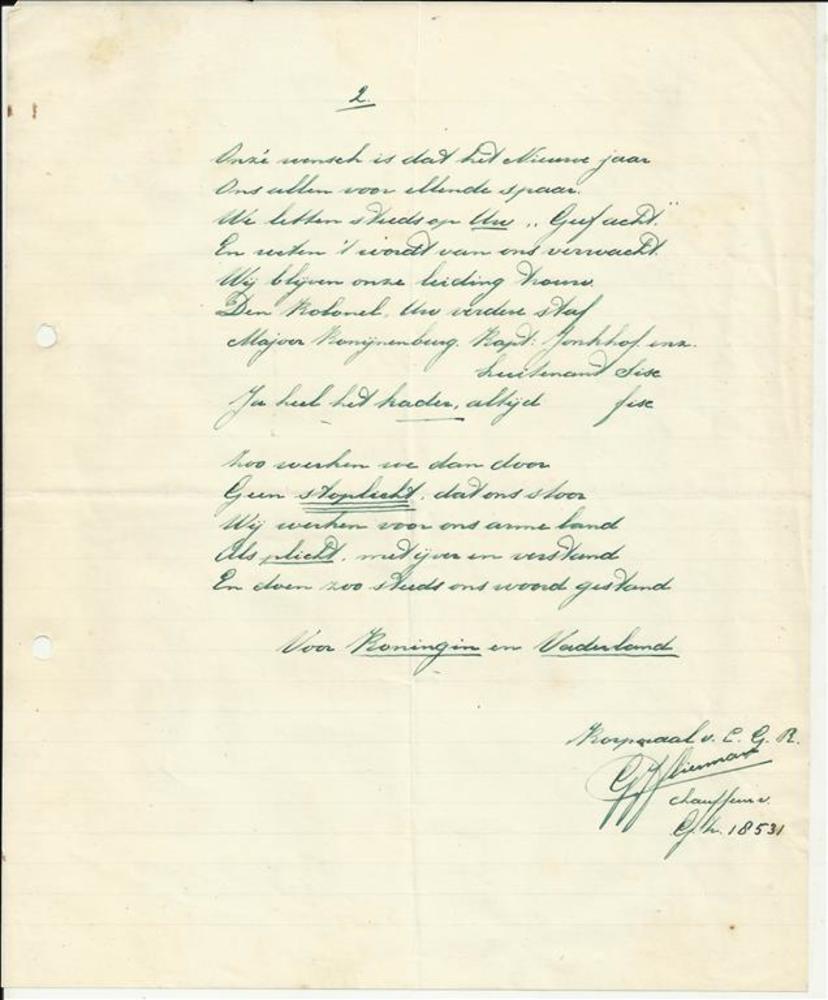 2.
Onze wensch is dat het Nieuwe jaar
Ons allen voor ellende spaar.
We letten steeds op Uw „Geef acht"
En weten 't wordt van ons verwacht.
Wij blijven onze leiding trouw.
Den Kolonel, Uw verdere staf
Majoor Konijnenburg. Kapt: Jonkhof. enz.
Luitenant Sise
Ja heel het kader, altijd fise
Zoo werken we dan door
Geen stoplicht, dat ons stoor
Wij werken voor ons arme land
Als plicht, met ijver en verstand
En doen zoo steeds ons woord gestand
Voor Koningin en Vaderland
Korporaal v. C. G. R.
chauffeur.
18531